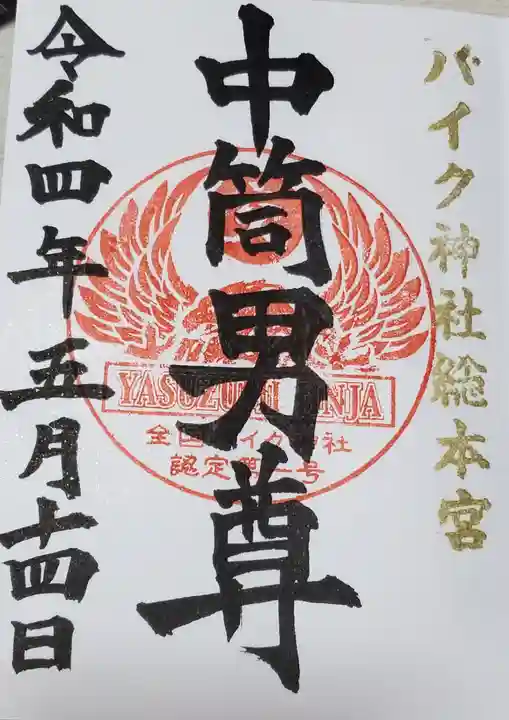 バイク神社総本宮
中筒男尊
YASUZUMI JINJA
全国バイク神社
認定第一号
令和四年五月十四日